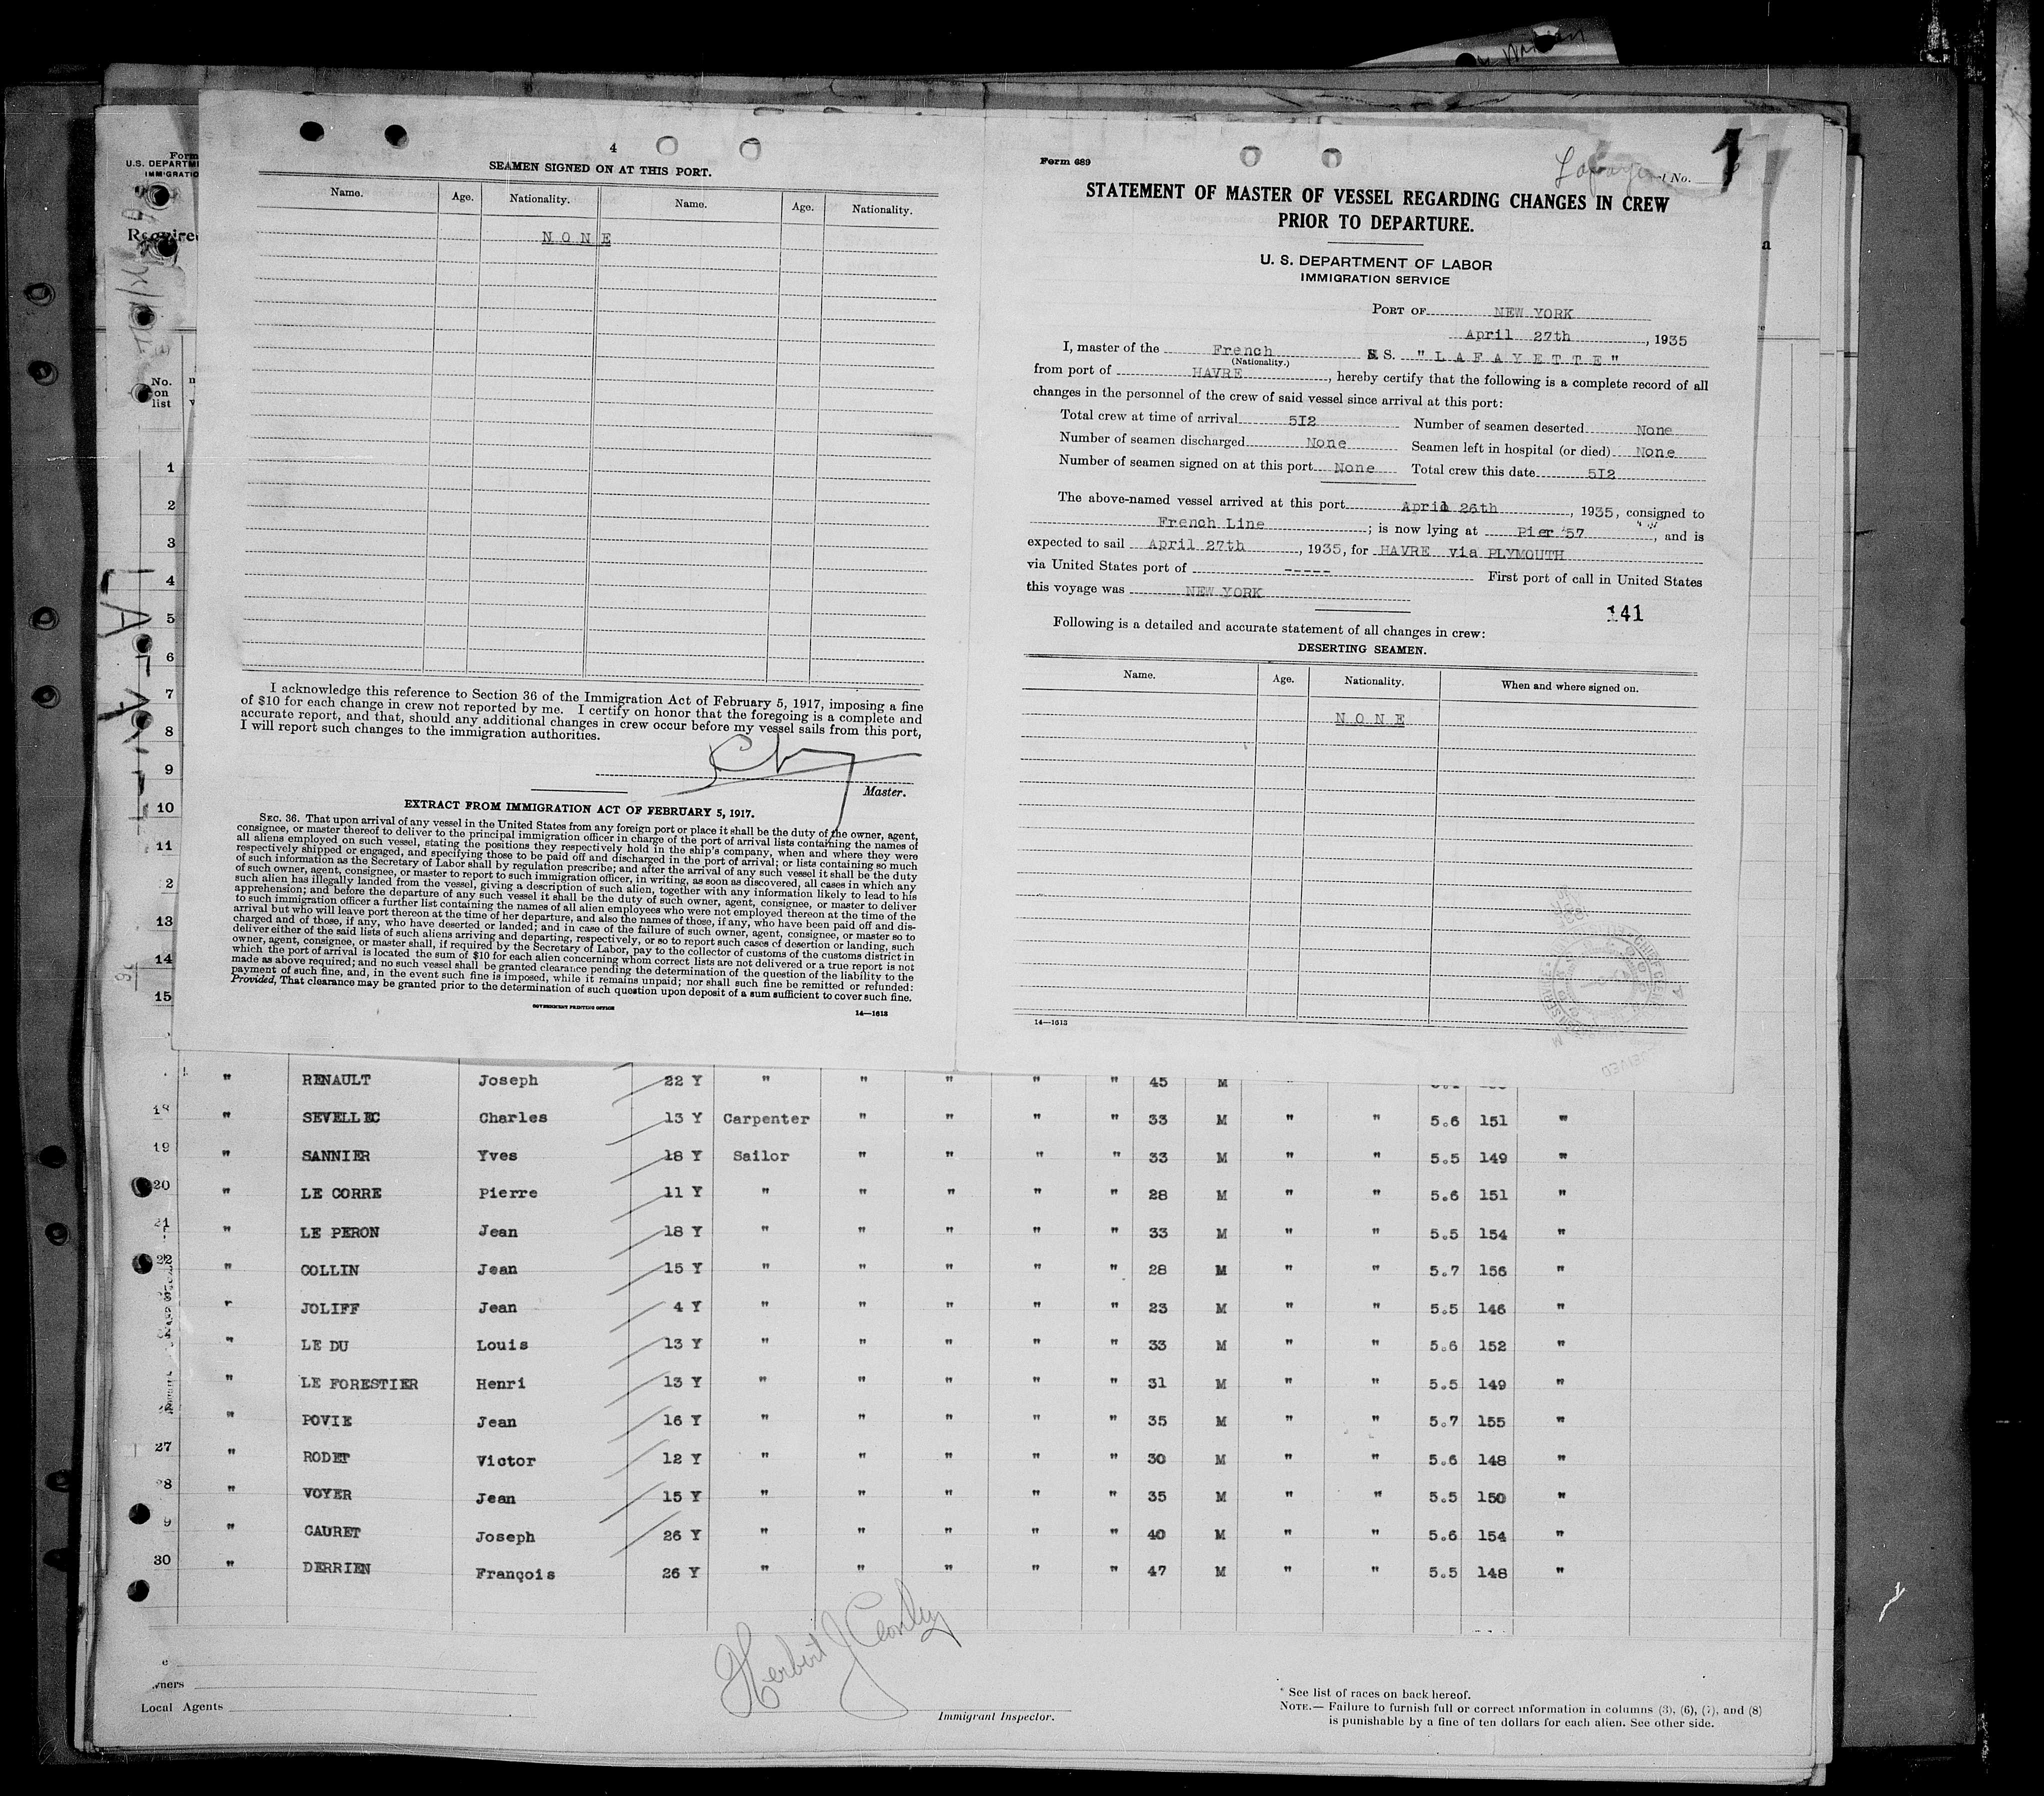 4
SEAMEN SIGNED ON AT THIS PORT.
Name. Age. Nationality. Name. Age. Nationality.
N O N E
I acknowledge this reference to Section 36 of the Immigration Act of February 5, 1917, imposing a fine
of $10 for each change in crew not reported by me. I certify on honor that the foregoing is a complete and
accurate report, and that, should any additional changes in crew occur before my vessel sails from this port,
I will report such changes to the immigration authorities.
Master.
EXTRACT FROM IMMIGRATION ACT OF FEBRUARY 5, 1917.
SEC. 36. That upon arrival of any vessel in the United States from any foreign port or place it shall be the duty of the owner, agent,
consignee, or master thereof to deliver to the principal immigration officer in charge of the port of arrival lists containing the names of
all aliens employed on such vessel, stating the positions they respectively hold in the ship's company, when and where they were
respectively shipped or engaged, and specifying those to be paid off and discharged in the port of arrival; or lists containing so much
of such information as the Secretary of Labor shall by regulation prescribe; and after the arrival of any such vessel it shall be the duty
of such owner, agent, consignee, or master to report to such immigration officer, in writing, as soon as discovered, all cases in which any
such alien has illegally landed from the vessel, giving a description of such alien, together with any information likely to lead to his
apprehension; and before the departure of any such vessel it shall be the duty of such owner, agent, consignee, or master to deliver
to such immigration officer a further list containing the names of all alien employees who were not employed thereon at the time of the
arrival but who will leave port thereon at the time of her departure, and also the names of those, if any, who have been paid off and dis-
charged and of those, if any, who have deserted or landed; and in case of the failure of such owner, agent, consignee, or master so to
deliver either of the said lists of such aliens arriving and departing, respectively, or so to report such cases of desertion or landing, such
owner, agent, consignee, or master shall, if required by the Secretary of Labor, pay to the collector of customs of the customs district in
which the port of arrival is located the sum of $10 for each alien concerning whom correct lists are not delivered or a true report is not
made as above required; and no such vessel shall be granted clearance pending the determination of the question of the liability to the
payment of such fine, and, in the event such fine is imposed, while it remains unpaid; nor shall such fine be remitted or refunded:
Provided, That clearance may be granted prior to the determination of such question upon deposit of a sum sufficient to cover such fine.
GOVERNMENT PRINTING OFFICE
14—1613
Form 689
No.
1
STATEMENT OF MASTER OF VESSEL REGARDING CHANGES IN CREW
PRIOR TO DEPARTURE.
U. S. DEPARTMENT OF LABOR
IMMIGRATION SERVICE
PORT OF NEW YORK
April 27th, 1935
I, master of the French S. S. " L A F A Y E T T E "
(Nationality.)
from port of HAVRE, hereby certify that the following is a complete record of all
changes in the personnel of the crew of said vessel since arrival at this port:
Total crew at time of arrival 5I2 Number of seamen deserted None
Number of seamen discharged None Seamen left in hospital (or died) None
Number of seamen signed on at this port None Total crew this date 5I2
The above-named vessel arrived at this port April 26th, 1935, consigned to
French Line; is now lying at Pier 57, and is
expected to sail April 27th, 1935, for HAVRE via PLYMOUTH
via United States port of ----- First port of call in United States
this voyage was NEW YORK
141
Following is a detailed and accurate statement of all changes in crew:
DESERTING SEAMEN.
Name. Age. Nationality. When and where signed on.
N O N E
14—1613
Form
U.S. DEPARTM
IMMIGRATIO
Require
No.
on
list
1
2
3
4
5
6
7
8
9
10
11
2
13
14
15
" RENAULT Joseph 22 Y " " " " " 45 M
18 " SEVELLEC Charles 13 Y Carpenter " " " " 33 M " " 5.6 151 "
19 " SANNIER Yves 18 Y Sailor " " " " 33 M " " 5.5 149 "
20 " LE CORRE Pierre 11 Y " " " " " 28 M " " 5.6 151 "
21 " LE PERON Jean 18 Y " " " " " 33 M " " 5.5 154 "
22 " COLLIN Jean 15 Y " " " " " 28 M " " 5.7 156 "
" JOLIFF Jean 4 Y " " " " " 23 M " " 5.5 146 "
" LE DU Louis 13 Y " " " " " 33 M " " 5.6 152 "
" LE FORESTIER Henri 13 Y " " " " " 31 M " " 5.5 149 "
" POVIE Jean 16 Y " " " " " 35 M " " 5.7 155 "
27 " RODET Victor 12 Y " " " " " 30 M " " 5.6 148 "
8 " VOYER Jean 15 Y " " " " " 35 M " " 5.5 150 "
9 " CAURET Joseph 26 Y " " " " " 40 M " " 5.6 154 "
30 " DERRIEN François 26 Y " " " " " 47 M " " 5.5 148 "
wners
Local Agents
Immigrant Inspector.
* See list of races on back hereof.
NOTE.— Failure to furnish full or correct information in columns (3), (6), (7), and (8)
is punishable by a fine of ten dollars for each alien. See other side.